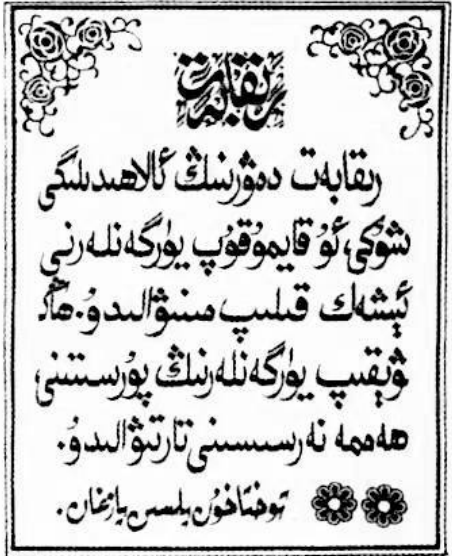 رىقابەت
رىقابەت دەۋرىنىڭ ئالاھىدىلىگى
شۇكى، ئۇ قايمۇقۇپ يۈرگەنلەرنى
ئېشەك قىلىپ مىنىۋالىدۇ. ھاڭ
ۋېقىپ يۈرگەنلەرنىڭ پۇرسىتىنى
ھەممە نەرسىسىنى تارتىۋالىدۇ.
توختاخۇن يىلىسىن يازغان.